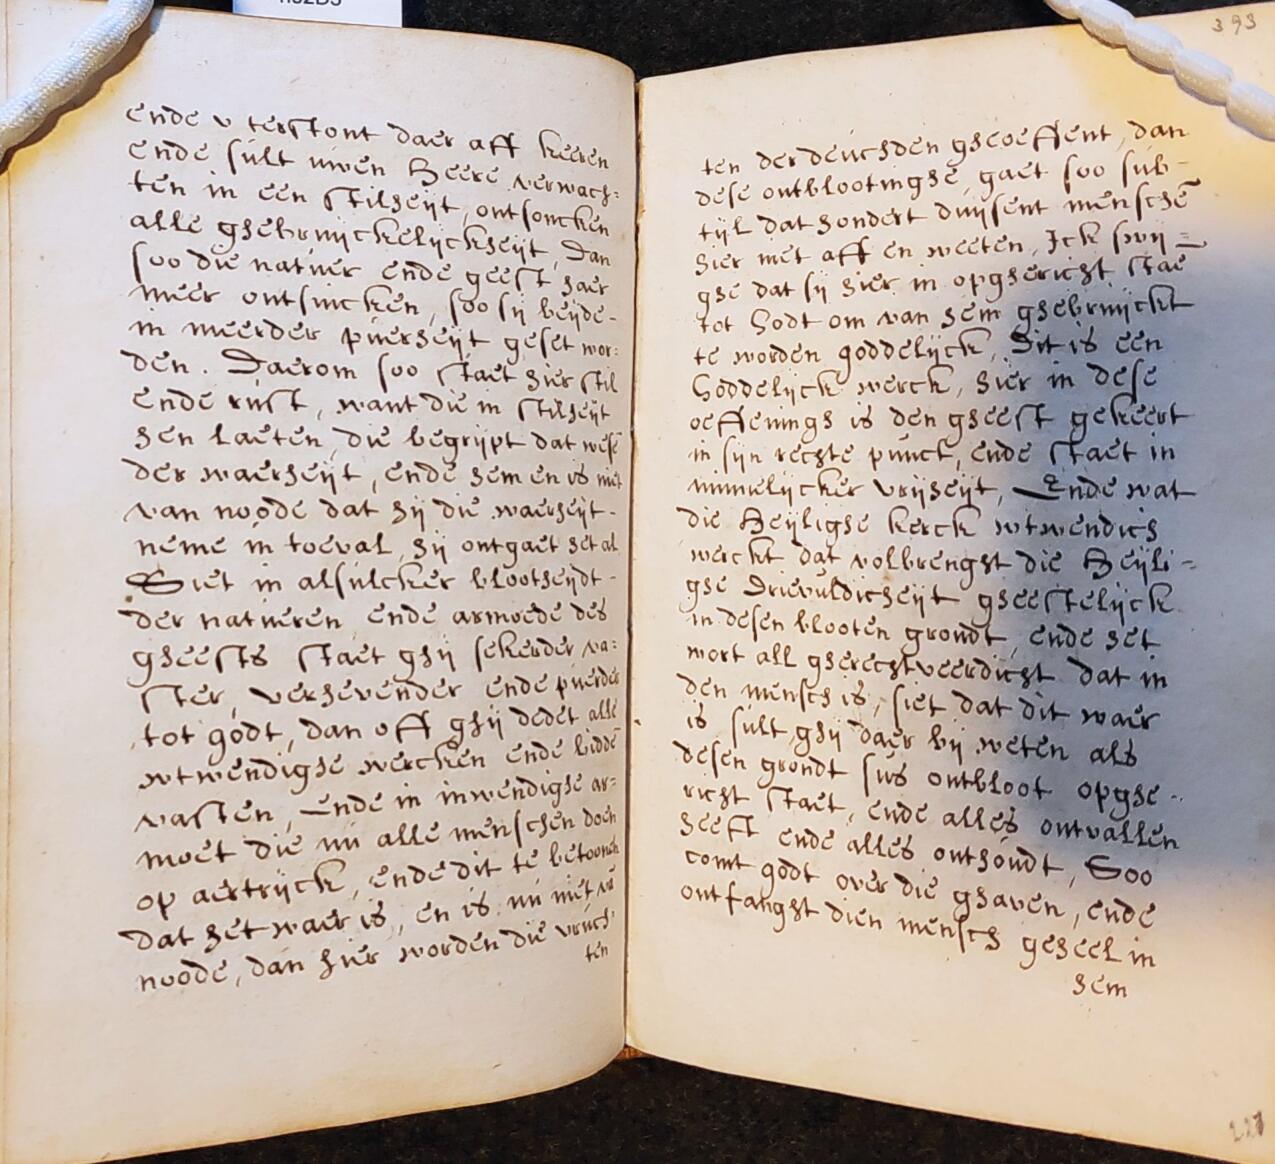 ende u terstont daer aff keeren
ende sult uwen Heere verwach=
ten in een stilheijt, ontsoncken
alle ghebruijckelijckheijt, Dan
soo die natuer ende geest haer
meer ontsincken, soo sij beijde-
in meerder puerheijt geset wor:
den. Daerom soo staet hier stil
ende rust, want die in stilheijt
hen laeten, die begrijpt dat wesē
der waerheijt, ende hem en is niet
van noode dat hij die waerheijt-
neme in toeval, hij ontgaet het al
Siet in alsulcker blootheijdt-
der natueren ende armoede des
gheests staet ghij sekerder va=
ster, verhevender ende puerder
tot godt, dan off ghij dedet alle
wtwendighe wercken ende biddē
vasten, Ende in inwendighe ar=
moet die nu alle menschen doen
op aertrijck, ende dit te betoonen
dat het waer is, en is nu niet vā
noode, dan hier worden die vruch
ten
393
ten der deuchden gheoeffent, dan
dese ontblootinghe, gaet soo sub-
tijl dat hondert duijsent menschē
hier niet aff en weeten, Ick swij=
ghe dat sij hier in opghericht stae
tot Godt om van hem ghebruijckt
te worden goddelijck, Dit is een
Goddelijck werck, hier in dese
oeffeningh is den gheest gekeert
in sijn rechte punct, ende staet in
minnelijcker vrijheijt, Ende wat
die Heijlighe kerck wtwendich
werckt dat volbrenght die Heijli=
ghe Drievuldicheijt gheestelijck
in desen blooten grondt, ende het
wort all gherechtveerdicht dat in
den mensch is, siet dat dit waer
is sult ghij daer bij weten als
desen grondt sus ontbloot opghe-
richt staet, ende alles ontvallen
heeft ende alles onthoudt, Soo
comt godt over die ghaven, ende
ontfanght dien mensch geheel in
hem